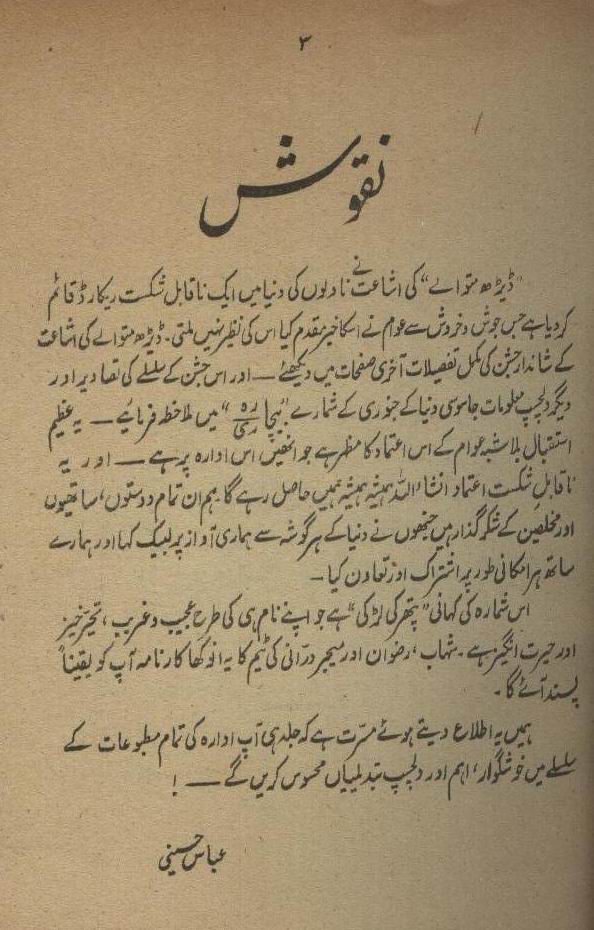 ۳
نقوش
"ڈیڑھ متوالے" کی اشاعت نے ناولوں کی دنیا میں ایک ناقابل شکست ریکارڈ قائم
کر دیا ہے جس جوش و خروش سے عوام نے اسکا خیر مقدم کیا اس کی نظیر نہیں ملتی۔ ڈیڑھ متوالے کی اشاعت
کے شاندار جشن کی مکمل تفصیلات آخری صفحات میں دیکھئے — اور اس جشن کے سلسلے کی تصاویر اور
دیگر دلچسپ معلومات جاسوسی دنیا کے جنوری کے شمارے "بیچارہ/ری" میں ملاحظہ فرمائیے — یہ عظیم
استقبال بلاشبہ عوام کے اس اعتماد کا مظہر ہے جو انھیں اس ادارہ پر ہے — اور یہ
ناقابل شکست اعتماد انشاء اللہ ہمیشہ ہمیشہ ہمیں حاصل رہے گا۔ ہم ان تمام دوستوں، ساتھیوں
اور مخلصین کے شکر گذار ہیں جنھوں نے دنیا کے ہر گوشہ سے ہماری آواز پر لبیک کہا اور ہمارے
ساتھ ہر امکانی طور پر اشتراک اور تعاون کیا—
اس شمارہ کی کہانی "پتھر کی لڑکی" ہے جو اپنے نام ہی کی طرح عجیب و غریب، تحیر خیز
اور حیرت انگیز ہے۔ شہاب، رضوان اور میجر درانی کی ٹیم کا یہ انوکھا کارنامہ آپ کو یقیناً
پسند آئے گا۔
ہمیں یہ اطلاع دیتے ہوئے مسرت ہے کہ جلد ہی آپ ادارہ کی تمام مطبوعات کے
سلسلے میں خوشگوار، اہم اور دلچسپ تبدیلیاں محسوس کریں گے — !
عباس حسینی